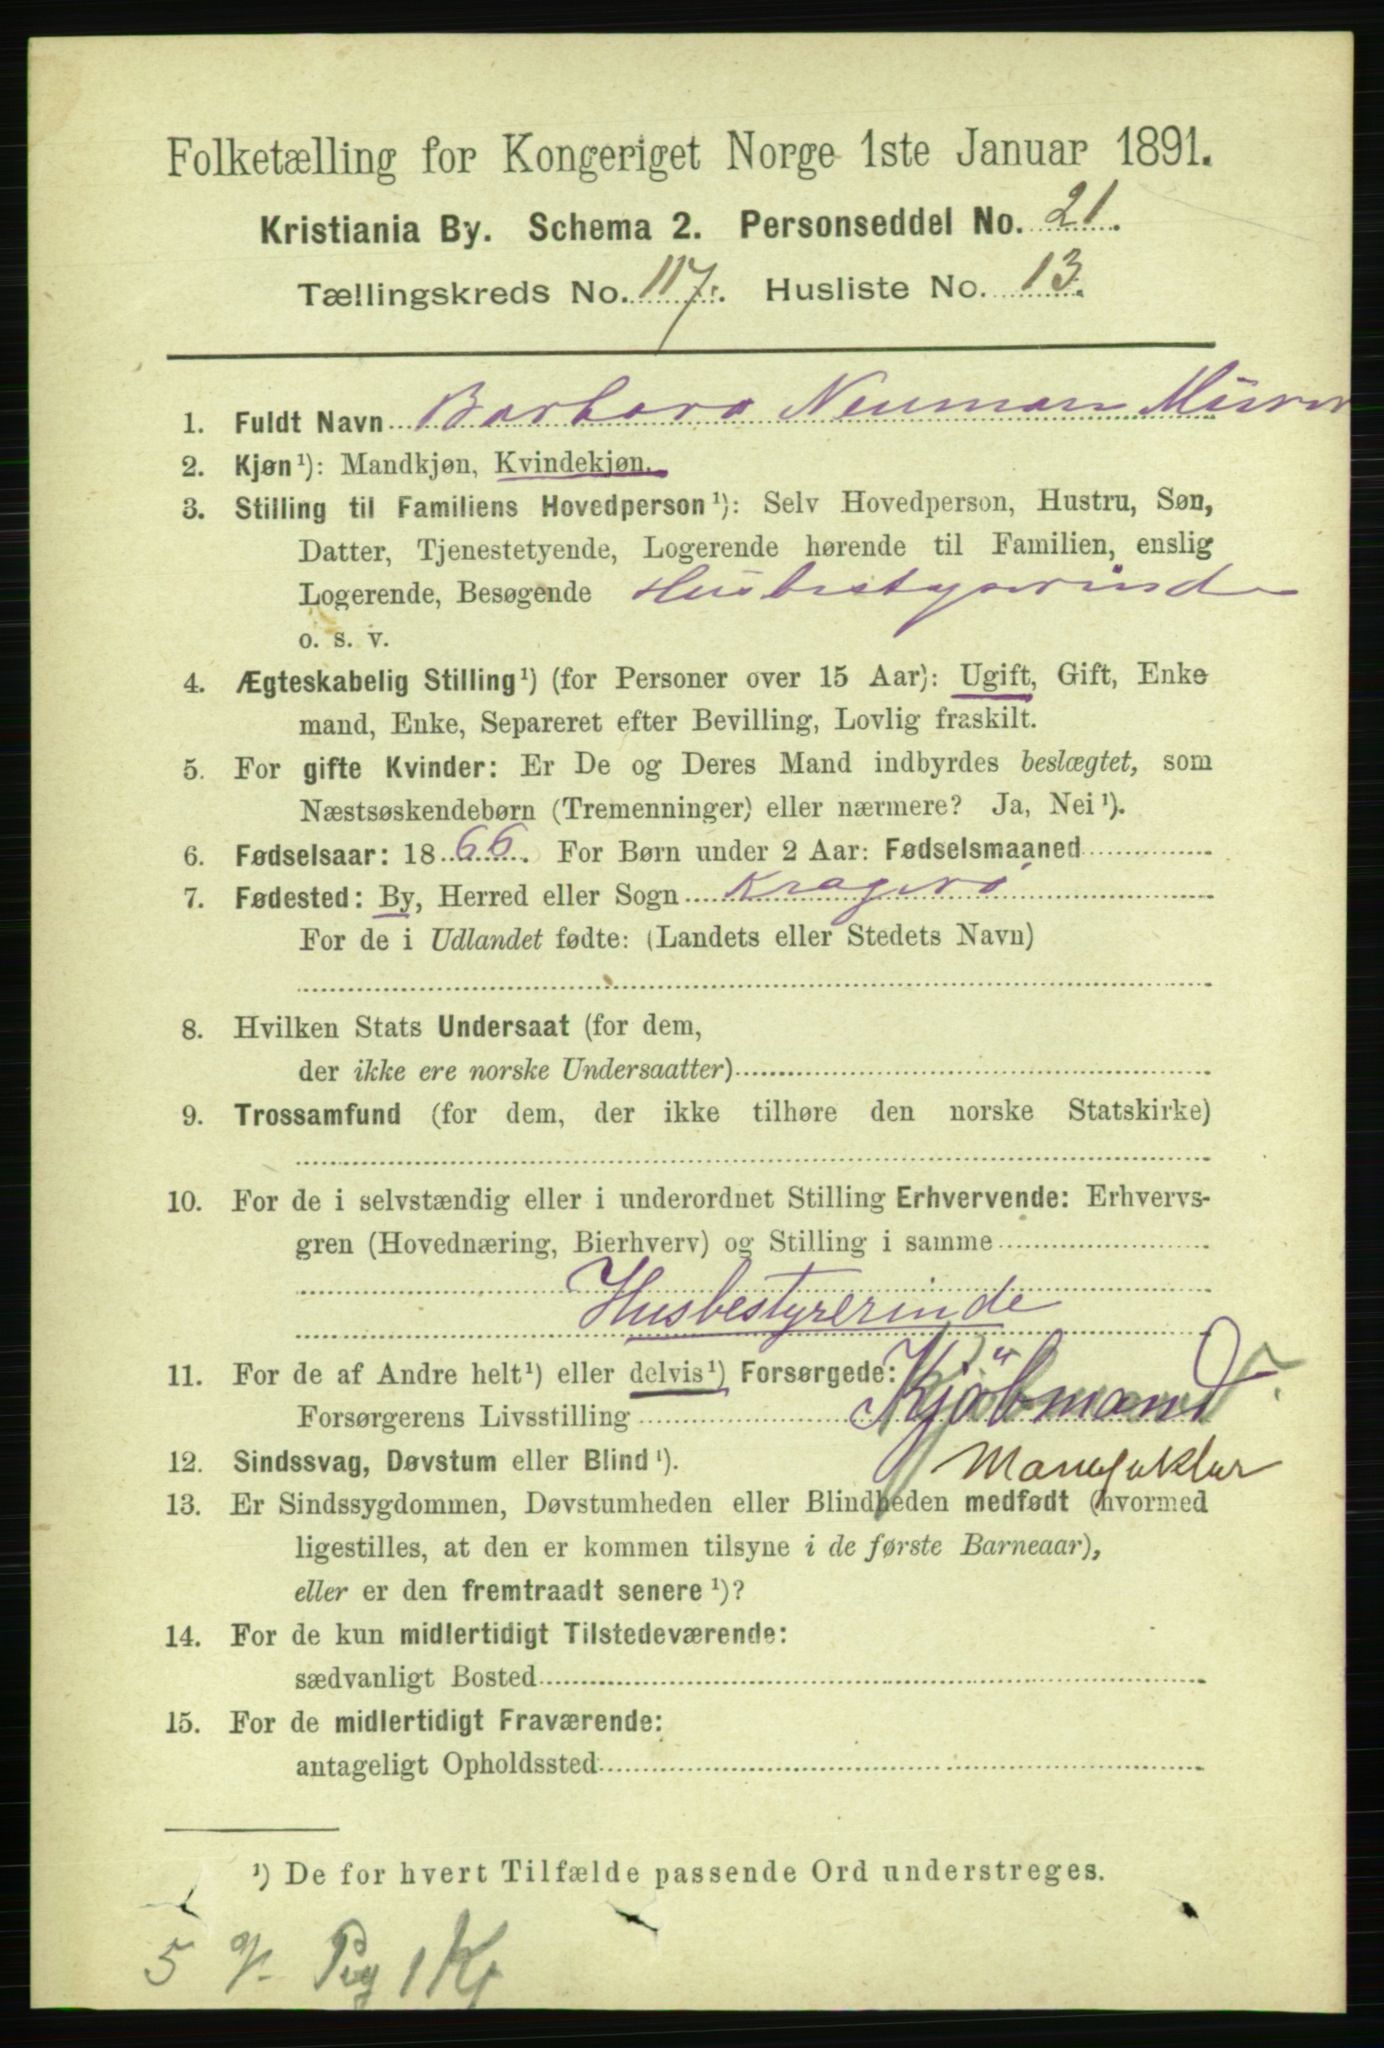 Folketælling for Kongeriget Norge 1ste Januar 1891.
Kristiania By. Schema 2. Personseddel No. 21.
Tællingskreds No. 117. Husliste No. 13.
1. Fuldt Navn Barbara Neuman
2. Kjøn¹): Mandkjøn, Kvindekjøn.
3. Stilling til Familiens Hovedperson¹): Selv Hovedperson, Hustru, Søn,
Datter, Tjenestetyende, Logerende hørende til Familien, enslig
Logerende, Besøgende Husbestyrerinde
o. s. v.
4. Ægteskabelig Stilling¹) (for Personer over 15 Aar): Ugift, Gift, Enke
mand, Enke, Separeret efter Bevilling, Lovlig fraskilt.
5. For gifte Kvinder: Er De og Deres Mand indbyrdes beslægtet, som
Næstsøskendebørn (Tremenninger) eller nærmere? Ja, Nei¹).
6. Fødselsaar: 1866. For Børn under 2 Aar: Fødselsmaaned
7. Fødested: By, Herred eller Sogn Kragerø
For de i Udlandet fødte: (Landets eller Stedets Navn)
8. Hvilken Stats Undersaat (for dem,
der ikke ere norske Undersaatter)
9. Trossamfund (for dem, der ikke tilhøre den norske Statskirke)
10. For de i selvstændig eller i underordnet Stilling Erhvervende: Erhvervs-
gren (Hovednæring, Bierhverv) og Stilling i samme
Husbestyrerinde
11. For de af Andre helt¹) eller delvis¹) Forsørgede:
Forsørgerens Livsstilling Kjöbmand
12. Sindssvag, Døvstum eller Blind¹). Manufaktur
13. Er Sindssygdommen, Døvstumheden eller Blindheden medfødt (hvormed
ligestilles, at den er kommen tilsyne i de første Barneaar),
eller er den fremtraadt senere¹)?
14. For de kun midlertidigt Tilstedeværende:
sædvanligt Bosted
15. For de midlertidigt Fraværende:
antageligt Opholdssted
¹) De for hvert Tilfælde passende Ord understreges.